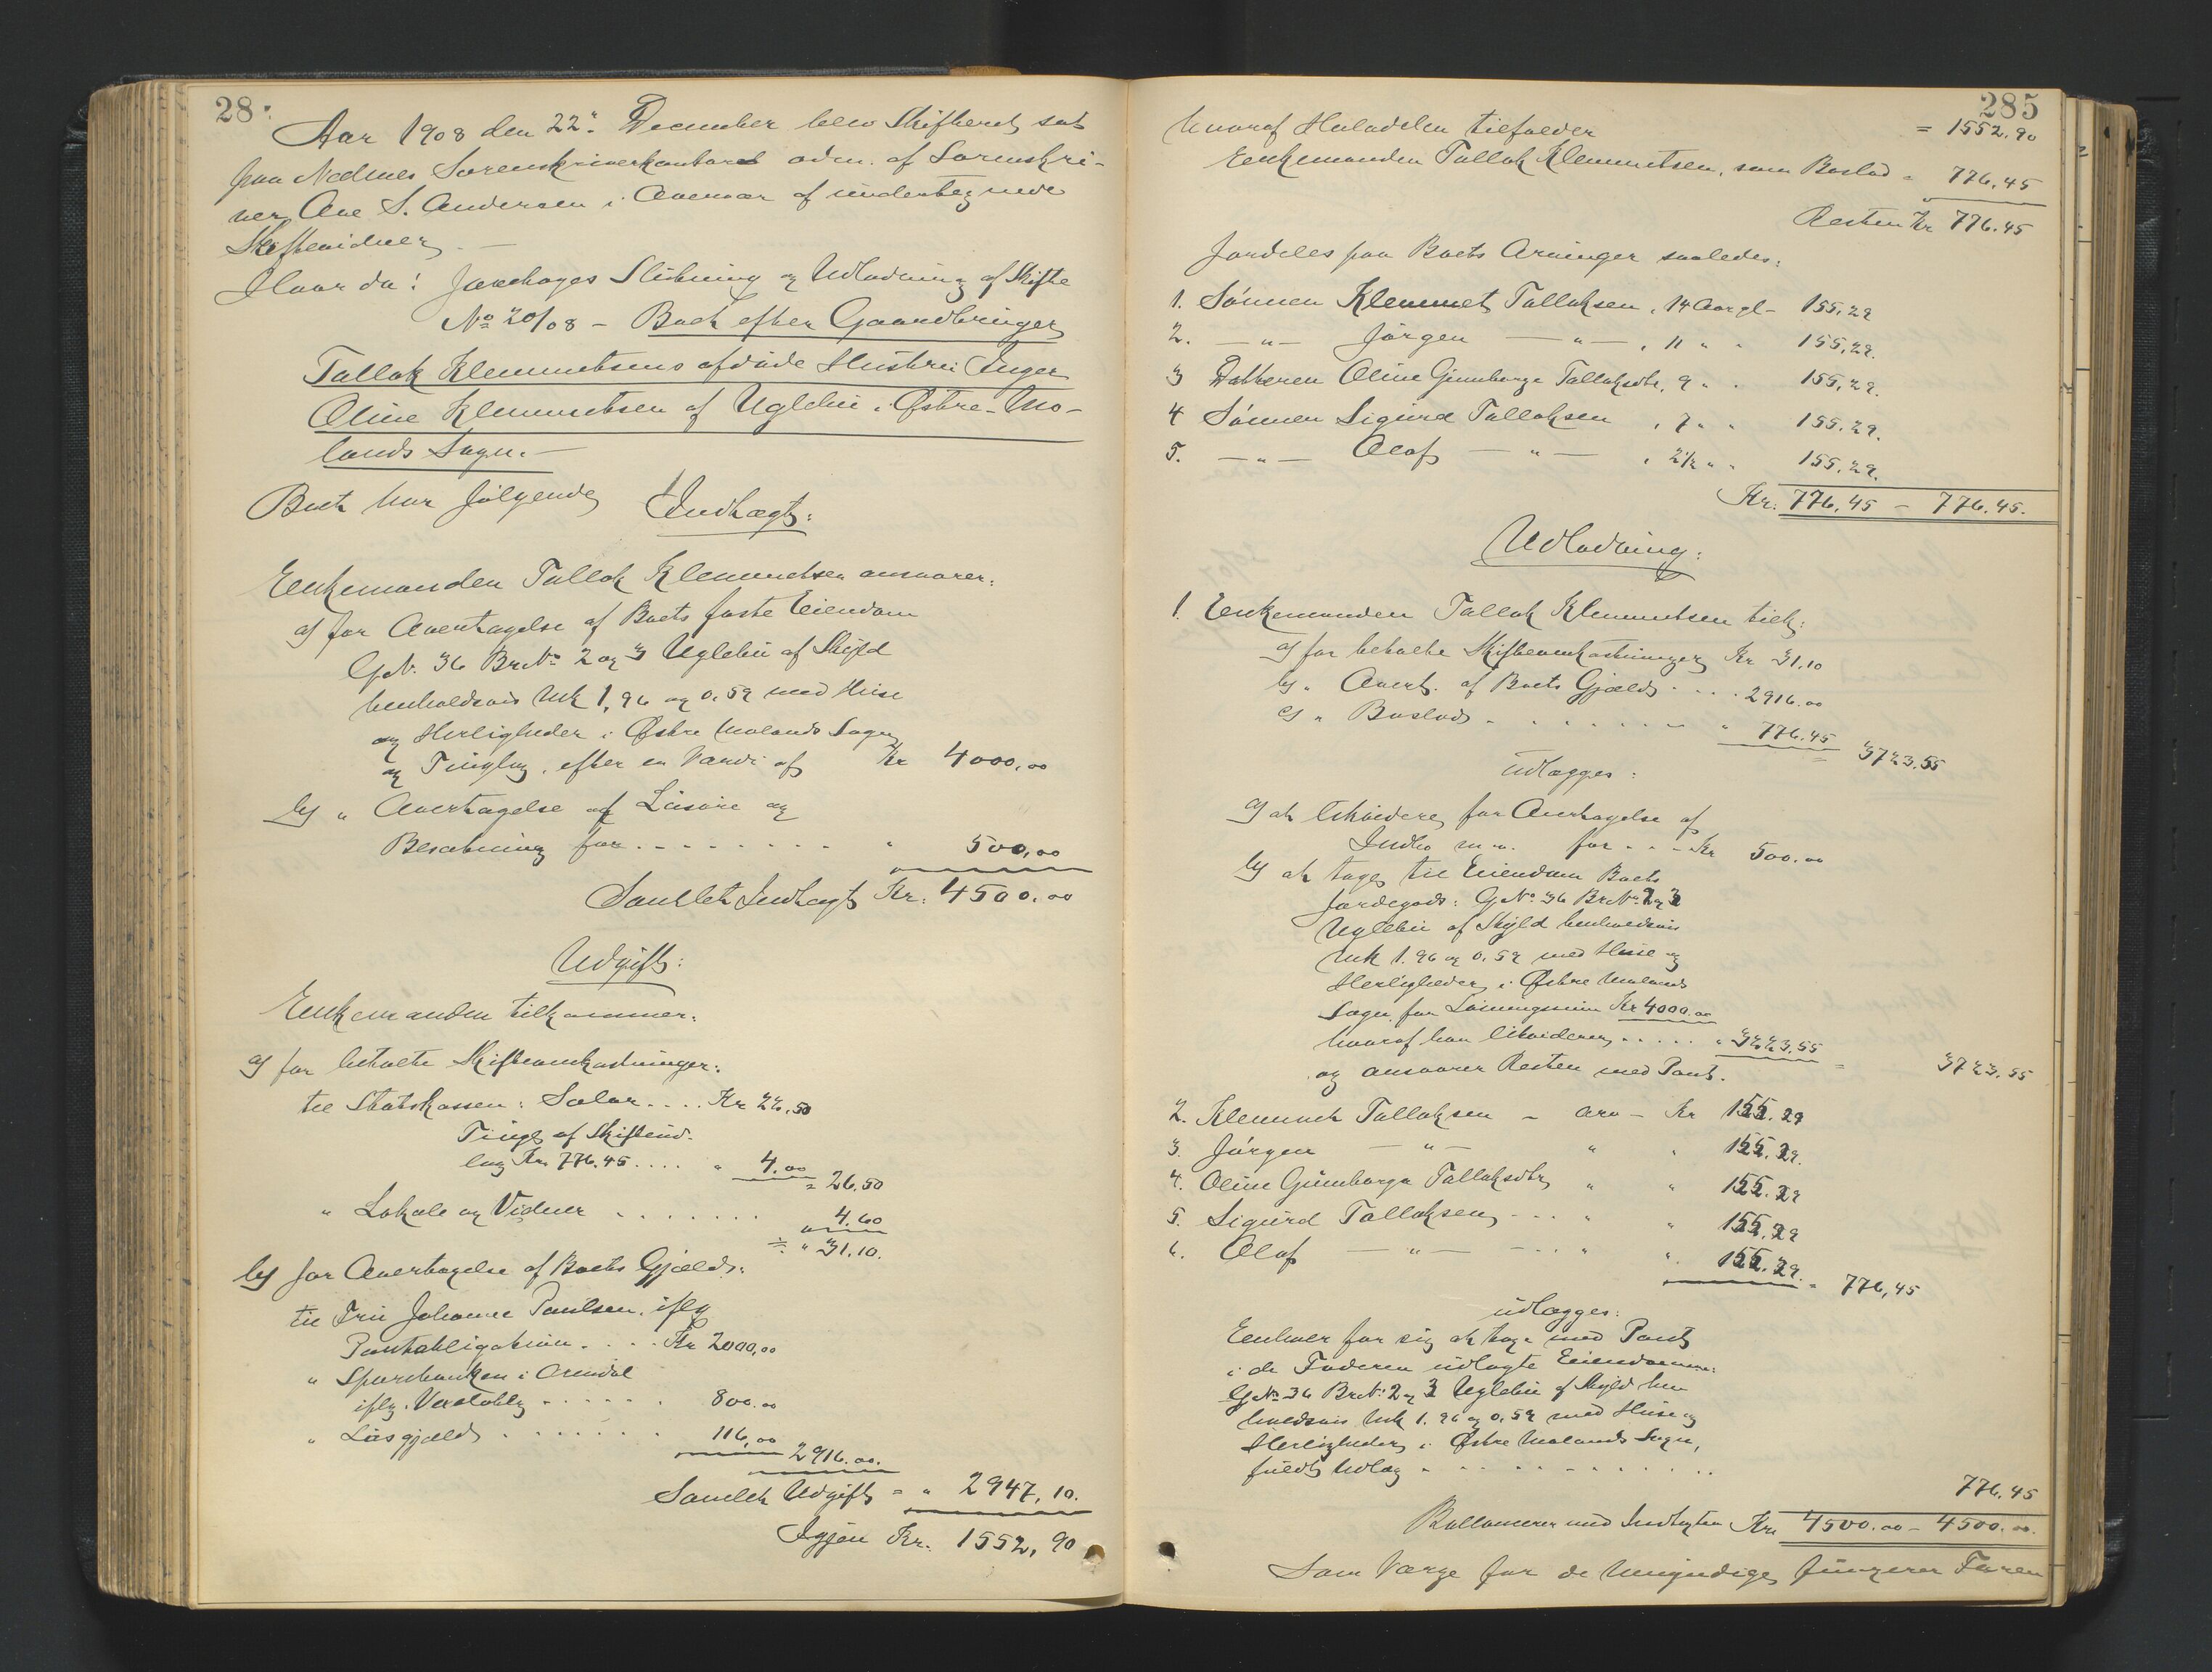 28
Aar 1908 den 22. December blev Skifteret sat
paa Nedenes Sorenskriverkontor adm. af Sorenskri-
ver Ove S. Andersen i Overvær af undertegnede
Skiftevidner. —
Hvor da: Foretoges Slutning og Udlodning af Skifte
No 20/08 - Boet efter Gaardbruger
Tallak Klemmetsens afdøde Hustru Inger
Oline Klemmetsen af Uglebu i Østre-Mo-
lands Sogn. —
Boet har følgende Indtægt:
Enkemanden Tallak Klemmetsen ansvarer:
a) for Overtagelse af Boets faste Eiendom
G.No. 36 Br.No 2 og 3 Uglebu af Skyld
henholdsvis Mk 1,96 og 0,59 med Huse
og Herligheder i Østre Molands Sogn
og Tinglag, efter en Værdi af Kr 4000,00
b) " Overtagelse af Løsøre og
Besætning for . . . . . . . . " 500,00
Samlet Indtægt Kr. 4500.00
Udgift:
Enkemanden tilkommer:
a) for betalte Skifteomkostninger:
til Statskassen: Salær.... Kr 22,50
Tingl. af Skifteud-
læg Kr. 776.45.... " 4.00 = 26,50
" Lokale og Vidner . . . . . . . 4.60
÷ " 31.10.
b) for Overtagelse af Boets Gjæld:
til Fru Johanne Paulsen, iflg
Pantobligation. . . . Kr 2000,00
" Sparebanken i Arendal
iflg. Vexeloblg . . . . . . 800.00
" Løsgjæld . . . . . . . 116,00
2916.00.
Samlet Udgift = " 2947,10.
Igjen Kr. 1552,90
285
hvoraf Halvdelen tilfalder = 1552.90
Enkemanden Tallak Klemmetsen, som Boslod = 776.45
Resten Kr 776.45
fordeles paa Boets Arvinger saaledes:
1. Sønnen Klemmet Tallaksen, 14 Aar gl - 155,29
2. — " — Jørgen — " — , 11 " " 155,29.
3 Datteren Oline Gunborga Tallaksdtr, 9 " . 155,29.
4 Sønnen Sigurd Tallaksen , 7 " " 155.29.
5. — " — Olaf — " — , 2½ " " 155,29.
Kr. 776,45 - 776.45.
Udlodning:
1. Enkemanden Tallak Klemmetsen tilk:
a) for betalte Skifteomkostninger Kr 31.10
b) " Overt. af Boets Gjæld . . . . 2916.00
c) " Boslod . . . . . . . . " 776.45 3723.55
udlægges:
a) at likvidere for Overtagelse af
Indbo m.v. for . . - Kr 500.00
b) at tages til Eiendom Boets
Jordegods: G.No. 36 Br.No. 2 og 3
Uglebu af Skyld henholdsvis
Mk 1.96 og 0,59 med Huse og
Herligheder i Østre Molands
Sogn, for Løsningssum Kr 4000.00
hvoraf han likviderer . . . . . " 3223,55 = 3723,55
og ansvarer Resten med Pant.
2. Klemmet Tallaksen - Arv - Kr 155.29
3. Jørgen — " — " " 155.29.
4. Oline Gunborga Tallaksdtr " " 155.29
5. Sigurd Tallaksen - . . " " 155,29
6. Olaf — " — - . . " " 155.29. = 776,45
udlægges:
Eenhver for sig at tage med Pant
i de Faderen udlagte Eiendomme:
G.No. 36 Br.No. 2 og 3 Uglebu af Skyld hen-
holdsvis Mk 1.96 og 0,59 med Huse og
Herligheder i Østre Molands Sogn,
fuldt Udlæg . . . . . . . . . . . 776.45
Ballancerer med Indtægten Kr. 4500.00 - 4500.00.
Som Værge for de Umyndige fungerer Faren